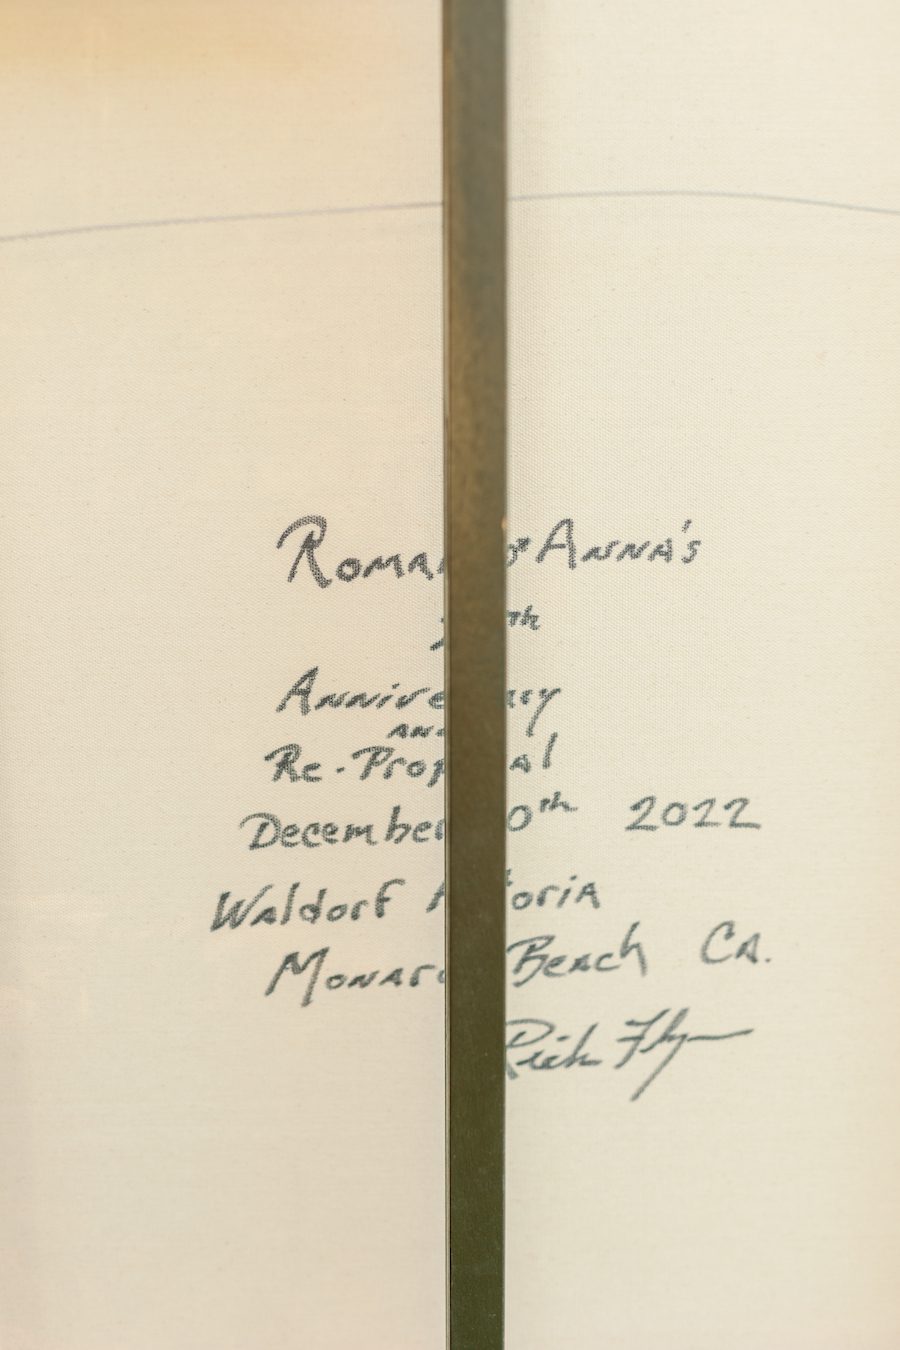 Roman & Anna's
th
Anniversary
and
Re-Proposal
December 0th 2022
Waldorf Astoria
Monarch Beach Ca.
Rick Flynn